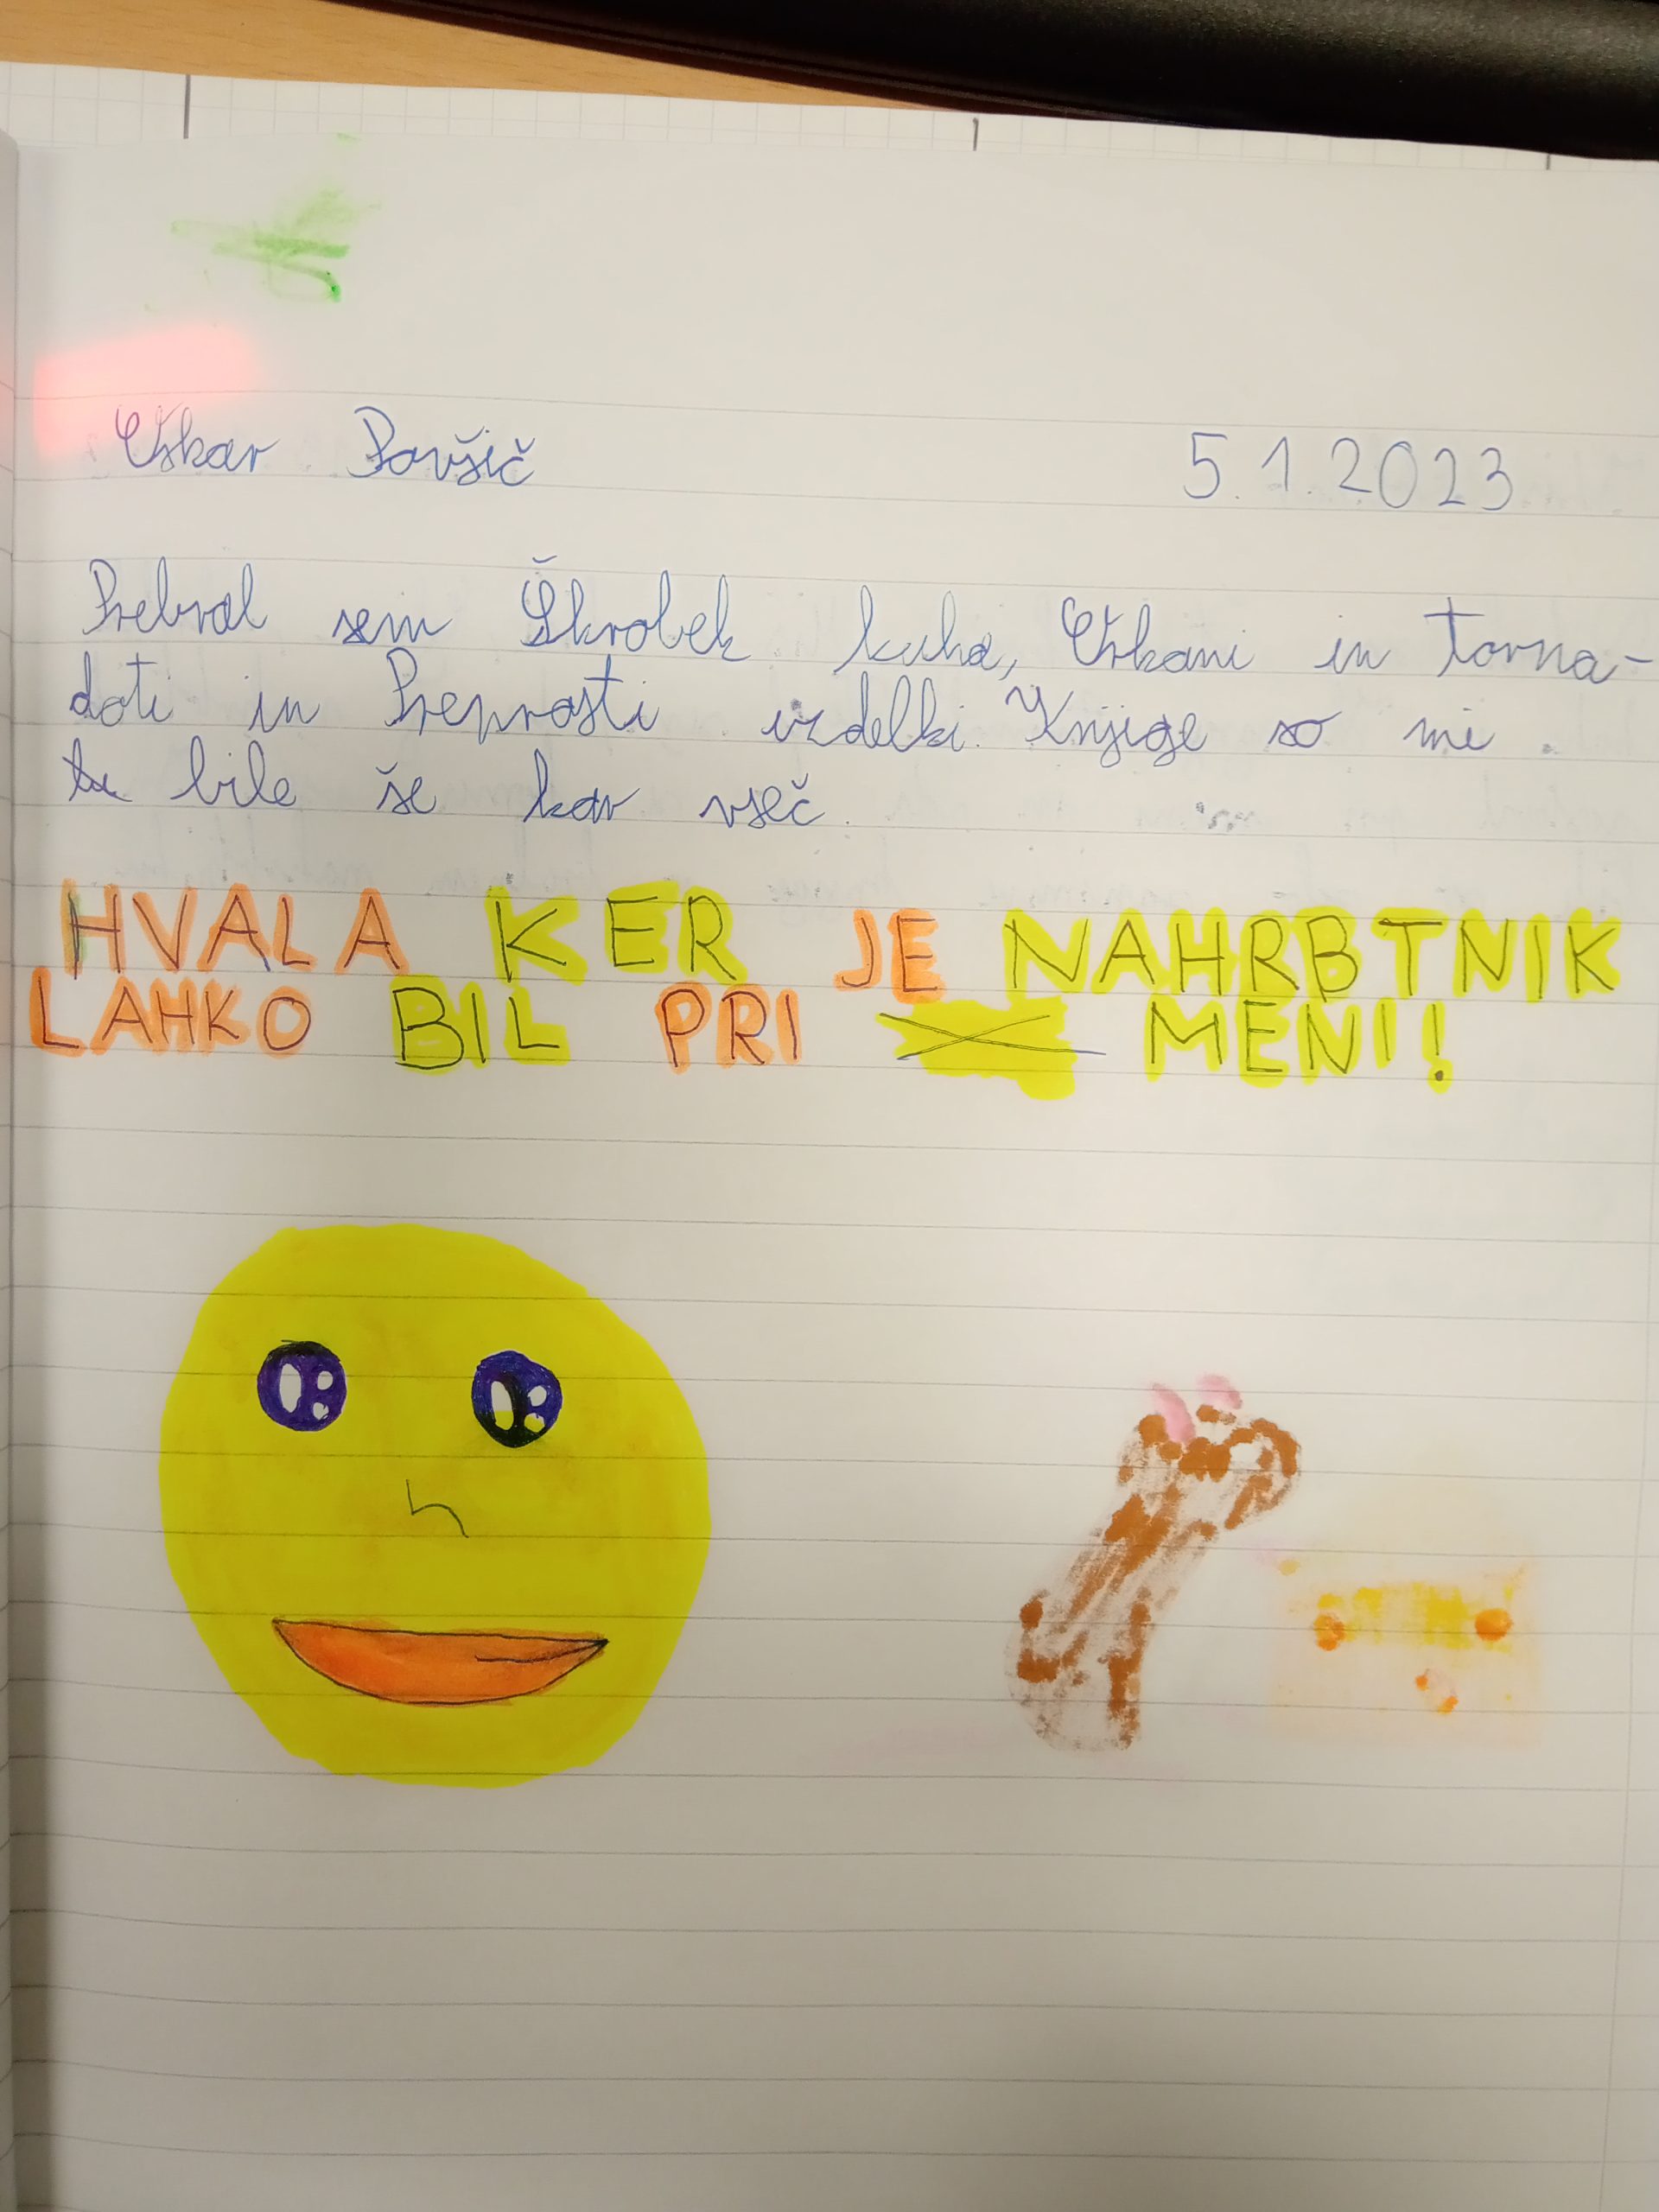 Oskar Povšič 5.1.2023
Prebral sem Škrobek kuha, Orkani in torna-
doti in Preprosti izdelki. Knjige so mi
bile še kar všeč.
HVALA KER JE NAHRBTNIK
LAHKO BIL PRI MENI!